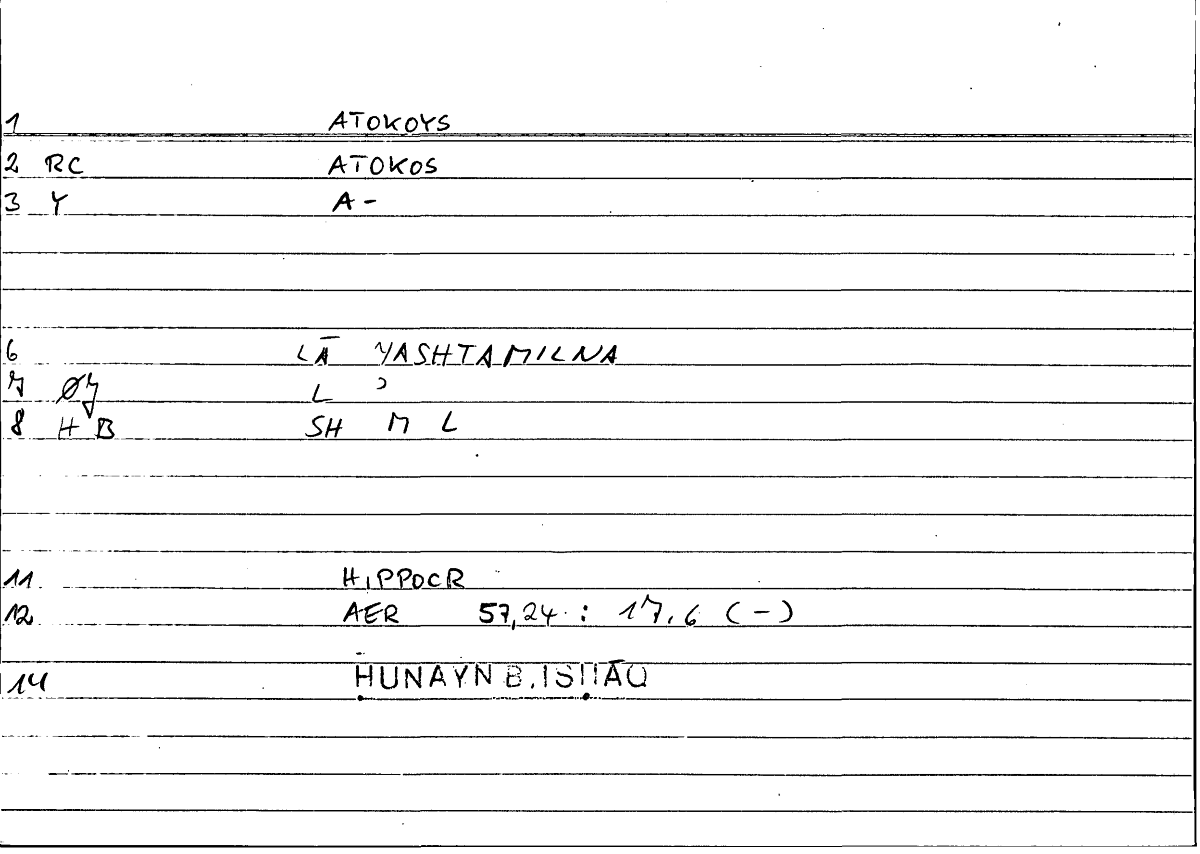 1 ATOKOYS
2 RC ATOKOS
3 Y A-
6 LĀ YASHTAMILNA
7 L ʾ
8 H B SH M L
11 HIPPOCR
12 AER 57,24 : 17.6 (-)
14 ḤUNAYN B. ISḤĀQ